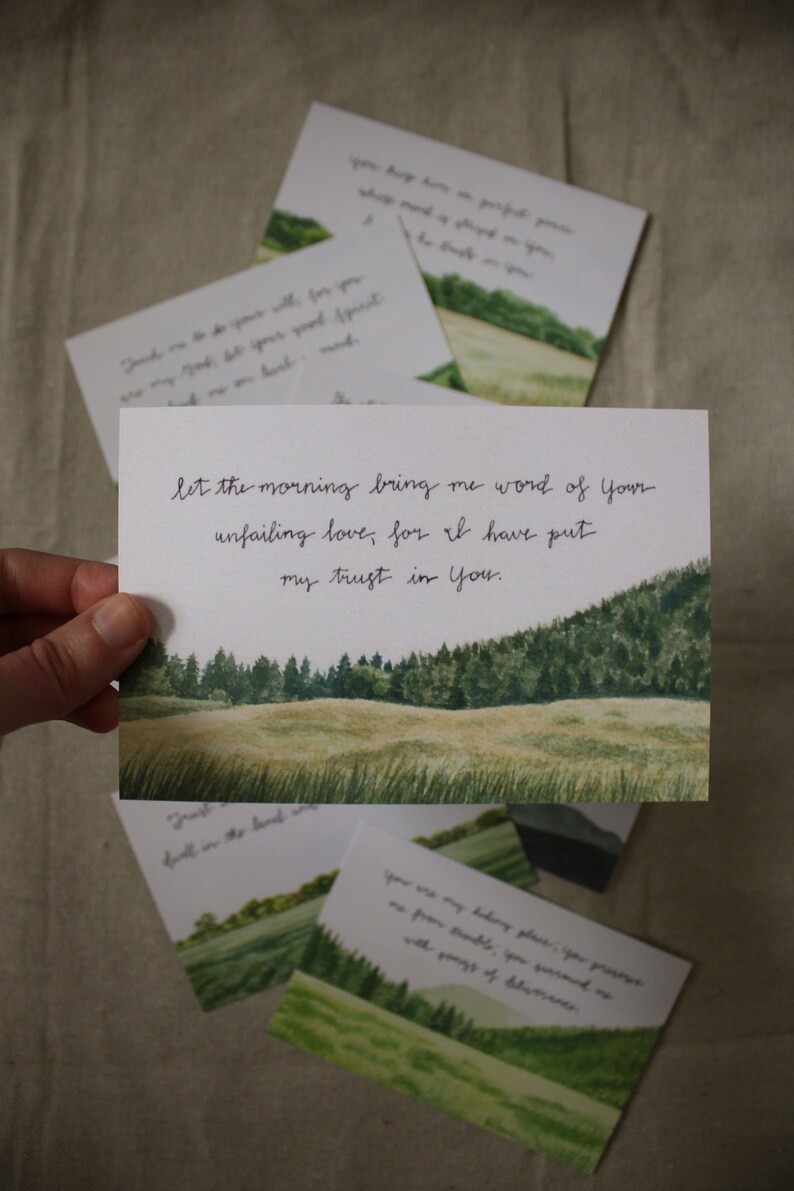 You keep him in perfect peace
whose mind is stayed on You,
he trusts in You
Teach me to do Your will, for You
are my God; let Your good Spirit
me on level
let the morning bring me word of Your
unfailing love, for I have put
my trust in You.
Trust
dwell in the land
You are my hiding place; You preserve
me from trouble; You surround me
with songs of deliverance.